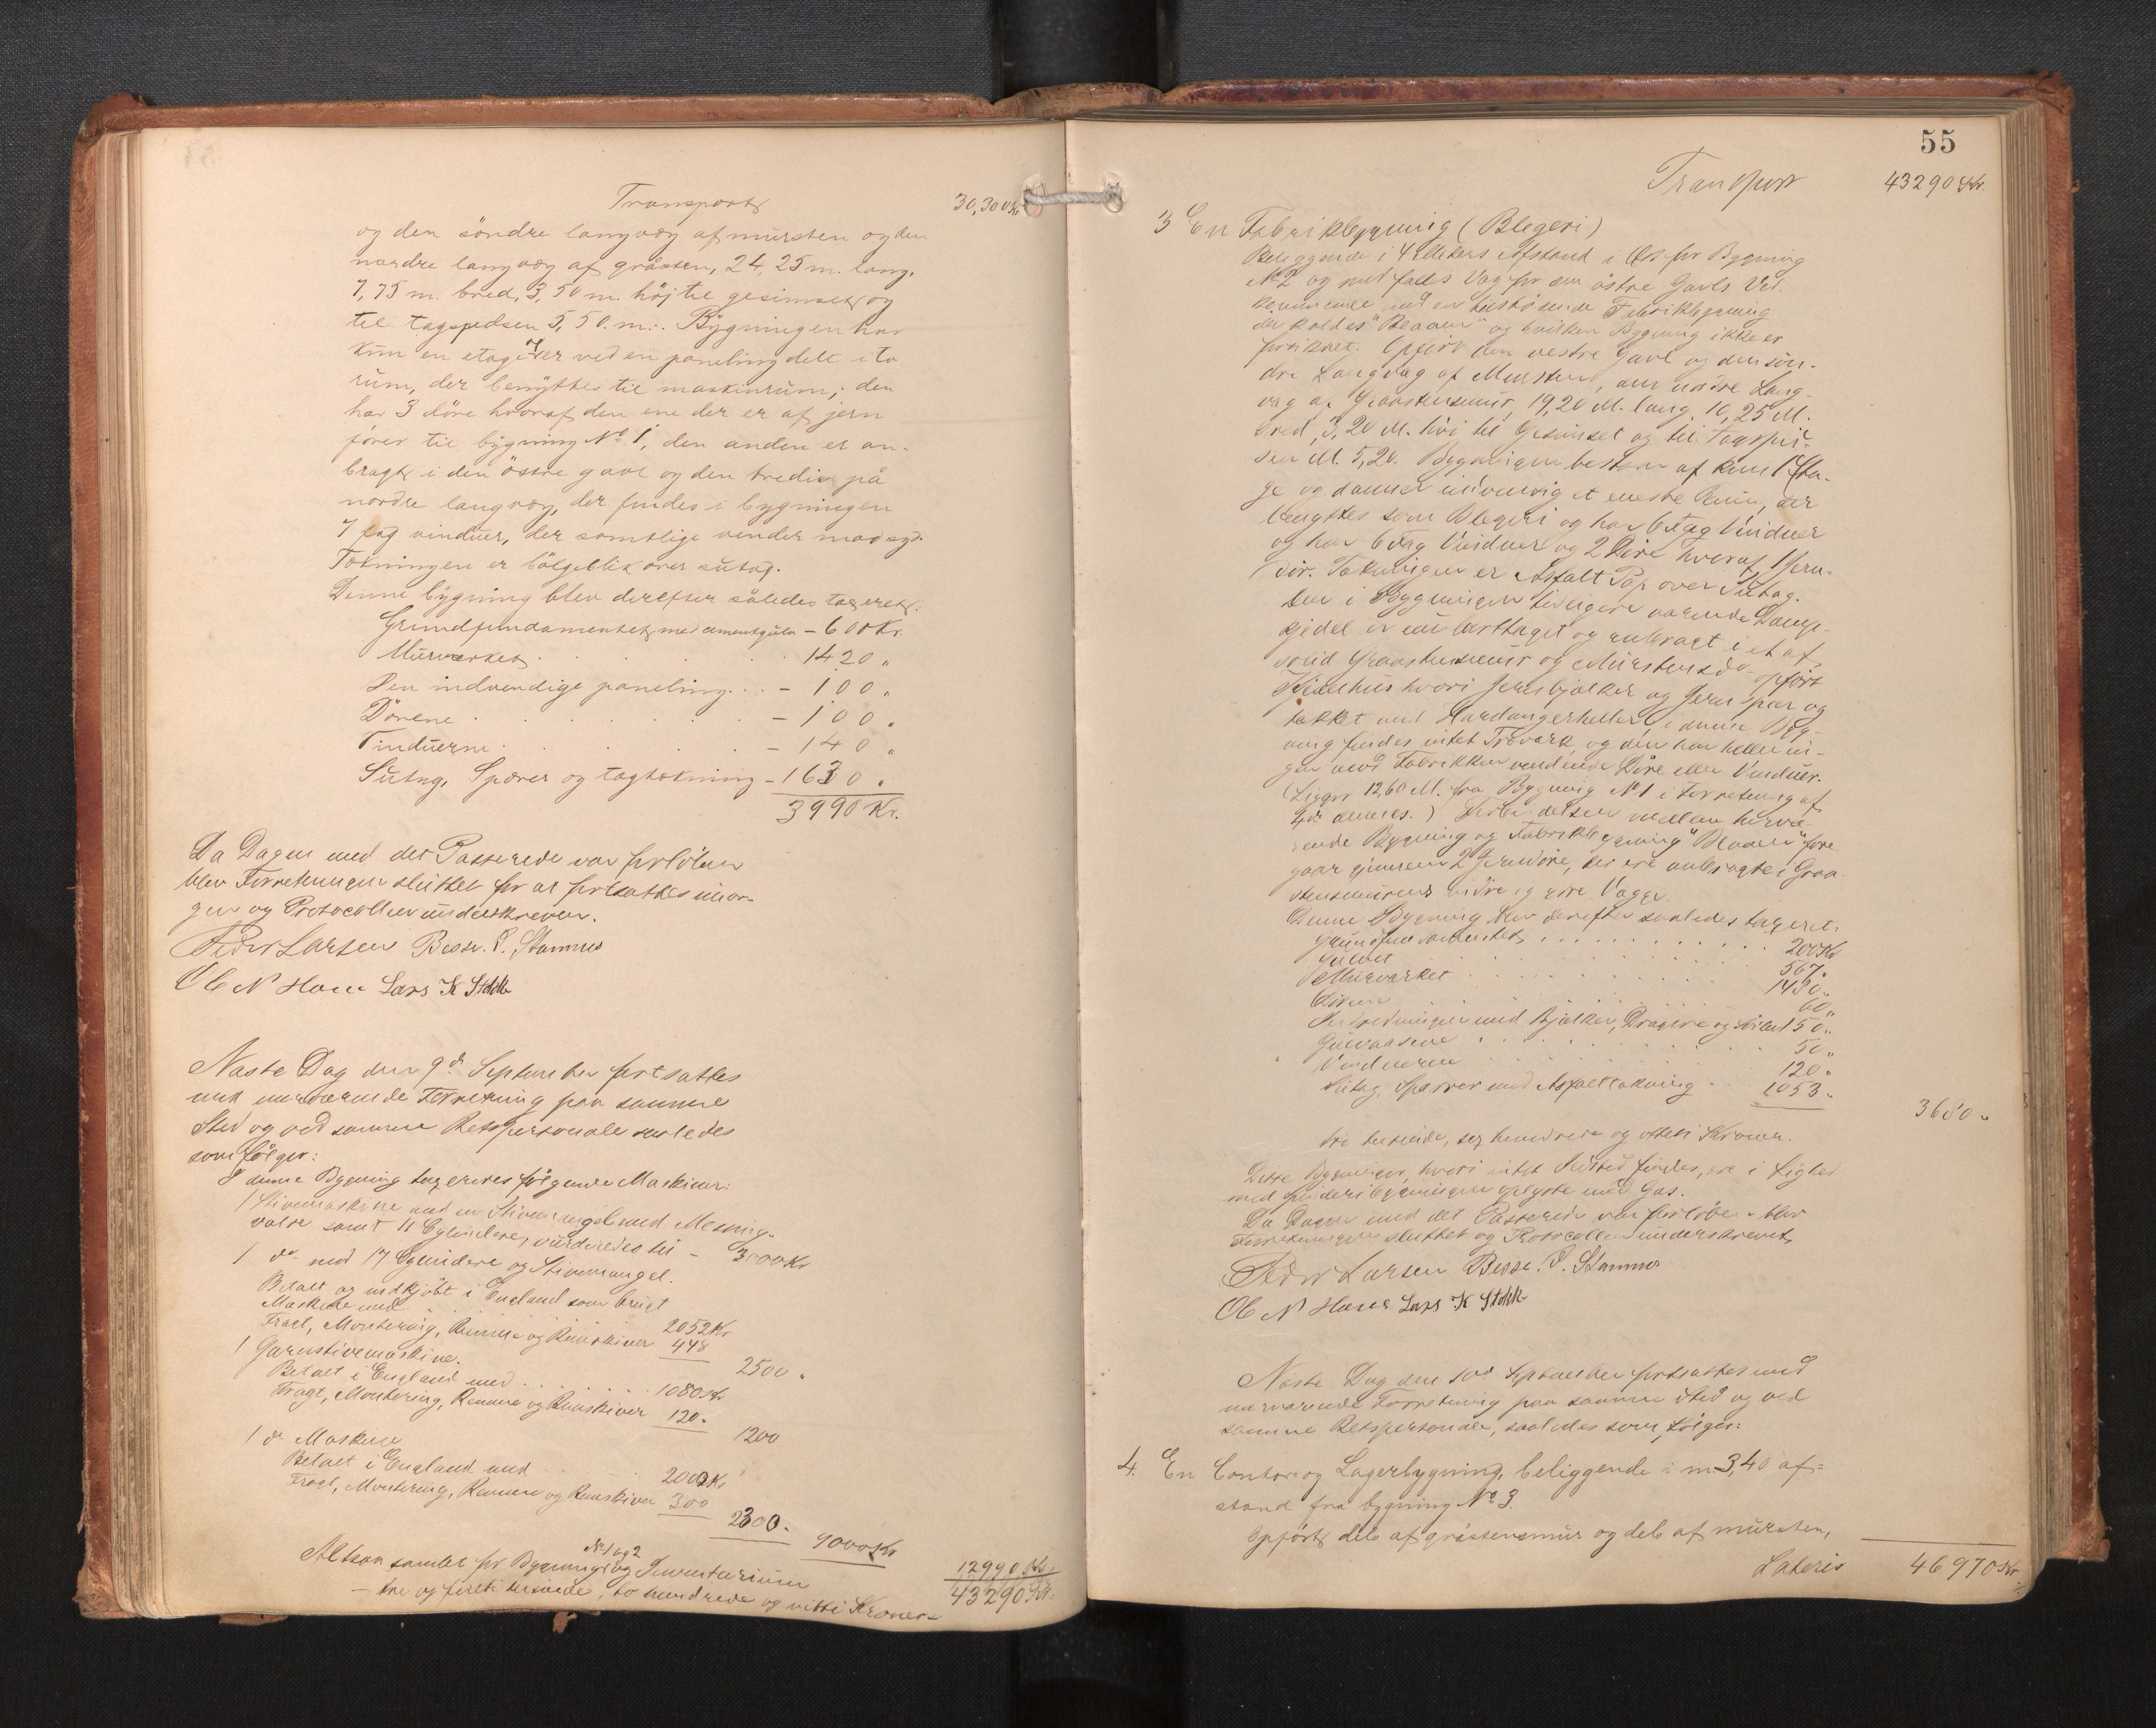 Transport 30,300 Kr
og den söndre langvæg af mursten og den
nordre langvæg af gråsten, 24,25 m. lang.
7,75 m. bred, 3,50 m. höj til gesimset og
til tagspidsen 5,50. m:. Bygningen har
kun en etage og er ved en paneling delt i to
rum, der benÿttes til maskinrum; den
har 3 döre hvoraf den ene der er af jern
förer til bÿgning No 1, den anden er an-
bragt i den östre gavl og den tredie på
nordre langvæg, der findes i bygningen
7 fag vinduer, der samtlige vender mod syd.
Tækningen er bölgeblik over sutag.
Denne bÿgning blev derefter således taxeret:
Grundfundamentet med cementgulv - 600 Kr.
Murværket . . . . . 1420 "
Den indvendige paneling . . - 100 "
Dörene . . . . . - 100 "
Vinduerne . . . . - 140 "
Sutag, Spærer og tagtækning - 1630 "
3990 Kr.
Da Dagen med det Passerede var forløben
blev Forretningen sluttet for at fortsættes imor-
gen og Protocollen underskreven.
Peder Larsen Besse. P. Stamnes
Ole N Hane Lars K Stokk
Næste Dag den 9de September fortsattes
med nærværende Forretning paa samme
Sted og ved samme Retspersonale saaledes
som følger:
I denne Bygning taxeredes følgende Maskiner:
1 Stivemaskine med en Stivemangel med Messing-
valse samt 11 Cylindere, vurderedes til - 3000 Kr
1 do med 17 Cylindere og Stivemangel.
Betalt og indkjøbt i England som brugt
Maskine med . . . 2052 Kr
Fragt, Montering, Remme og Remskiver 448
2500 "
1 Garnstivemaskine.
Betalt i England med . . . . . . 1080 Kr
Fragt, Montering, Remme og Remskiver 120 "
1200
1 do Maskine
Betalt i England med . . . 2000 Kr
Fragt, Montering, Remme og Remskiver 300
2300 "
9000 Kr
12990 Kr.
Altsaa samlet for Bygninger No 1 og 2 og Inventarium
43290 Kr.
— tre og firti tusinde, to hundrede og nitti Kroner —
55
Transport 43290 Kr.
3 En Fabrikbygning (Blegeri)
Beliggende i 4 Meters Afstand i Øst for Bygning
No 2 og med fælles Væg for den østre Gavls Ved-
kommende med en tilstødende Fabrikbygning
der kaldes "Blaaen" og hvilken Bygning ikke er
forsikret. Opført den vestre Gavl og den søn-
dre Langvæg af Mursten, den nordre Lang-
væg af Graastensmur, 19,20 M. lang, 10,25 M.
bred, 3,20 M. høi til Gesimset og til Tagspid-
sen M. 5,20. Bygningen bestaar af kun 1 Eta-
ge og danner indvendig et eneste Rum, der
benyttes som Blegeri og har 6 Fag Vinduer
og har 6 Fag Vinduer og 2 Døre hvoraf 1 Jern-
dør. Tækningen er Asfalt Pap over Sutag.
Den i Bygningen tidligere værende Damp-
kjedel er nu borttaget og anbragt i et af
solid Graastensmur og Murstens do opført
Kjedelhus hvori Jernbjælker og Jern Spær og
takket med Hardangerheller, i denne Byg-
ning findes intet Træværk, og den har heller in-
gen mod Fabrikken vendende Døre eller Vinduer.
(Ligger 12,60 M. fra Bygning No 1 i Forretning af
4de dennes.) Forbindelsen mellem hervæ-
rende Bygning og Fabrikbygning "Blaaen" fore
gaar gjennem 2 Jerndøre, der ere anbragte i Graa-
stensmurens indre og ydre Vægge.
Denne Bygning blev derefter saaledes taxeret:
Grundfundamentet . . . . . . . . . 200 Kr
Gulvet . . . . . 567 "
Murværket . . . . . 1430 "
Dørene . . . . . 60 "
Indredningen med Bjælker, Dragere og 150 "
. . . . . 50 "
Vinduerne . . . . . 120 "
Sutag, Sperrer med Asfalttækning . 1053 "
3680 "
tre tusinde, sex hundrede og otteti Kroner.
Disse Bygninger, hvori intet Ildsted findes, ere i Lighed
med Spinderibygningen oplyste med Gas.
Da Dagen med det Passerede var forløben blev
Forretningen sluttet og Protocollen underskrevet
Peder Larsen Besse. P. Stamnes
Ole N Hane Lars K Stokk
Næste Dag den 10de September fortsattes med
nærværende Forretning paa samme Sted og ved
samme Retspersonale, saaledes som følger:
4. En Contor- og Lagerbygning, beliggende i m 3,40 af-
stand fra bygning No 3.
Opfört dels af gråstensmur og dels af mursten,
Lateris 46970 Kr.